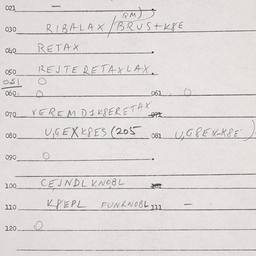 021 —
RM)
030 RIBALAX/BRUS+K8E
040 RETAX
050 REJTERETAXLAX.
051 O
060. O 061. O
070 VEREMD1K8ERETAX 071
080 U,GEXK8ES(205 081 U,G8EXK8E)
090 O
100 CEJNDLKNOBL
110 K8EPL FUNKNOBL 111 —
120 O